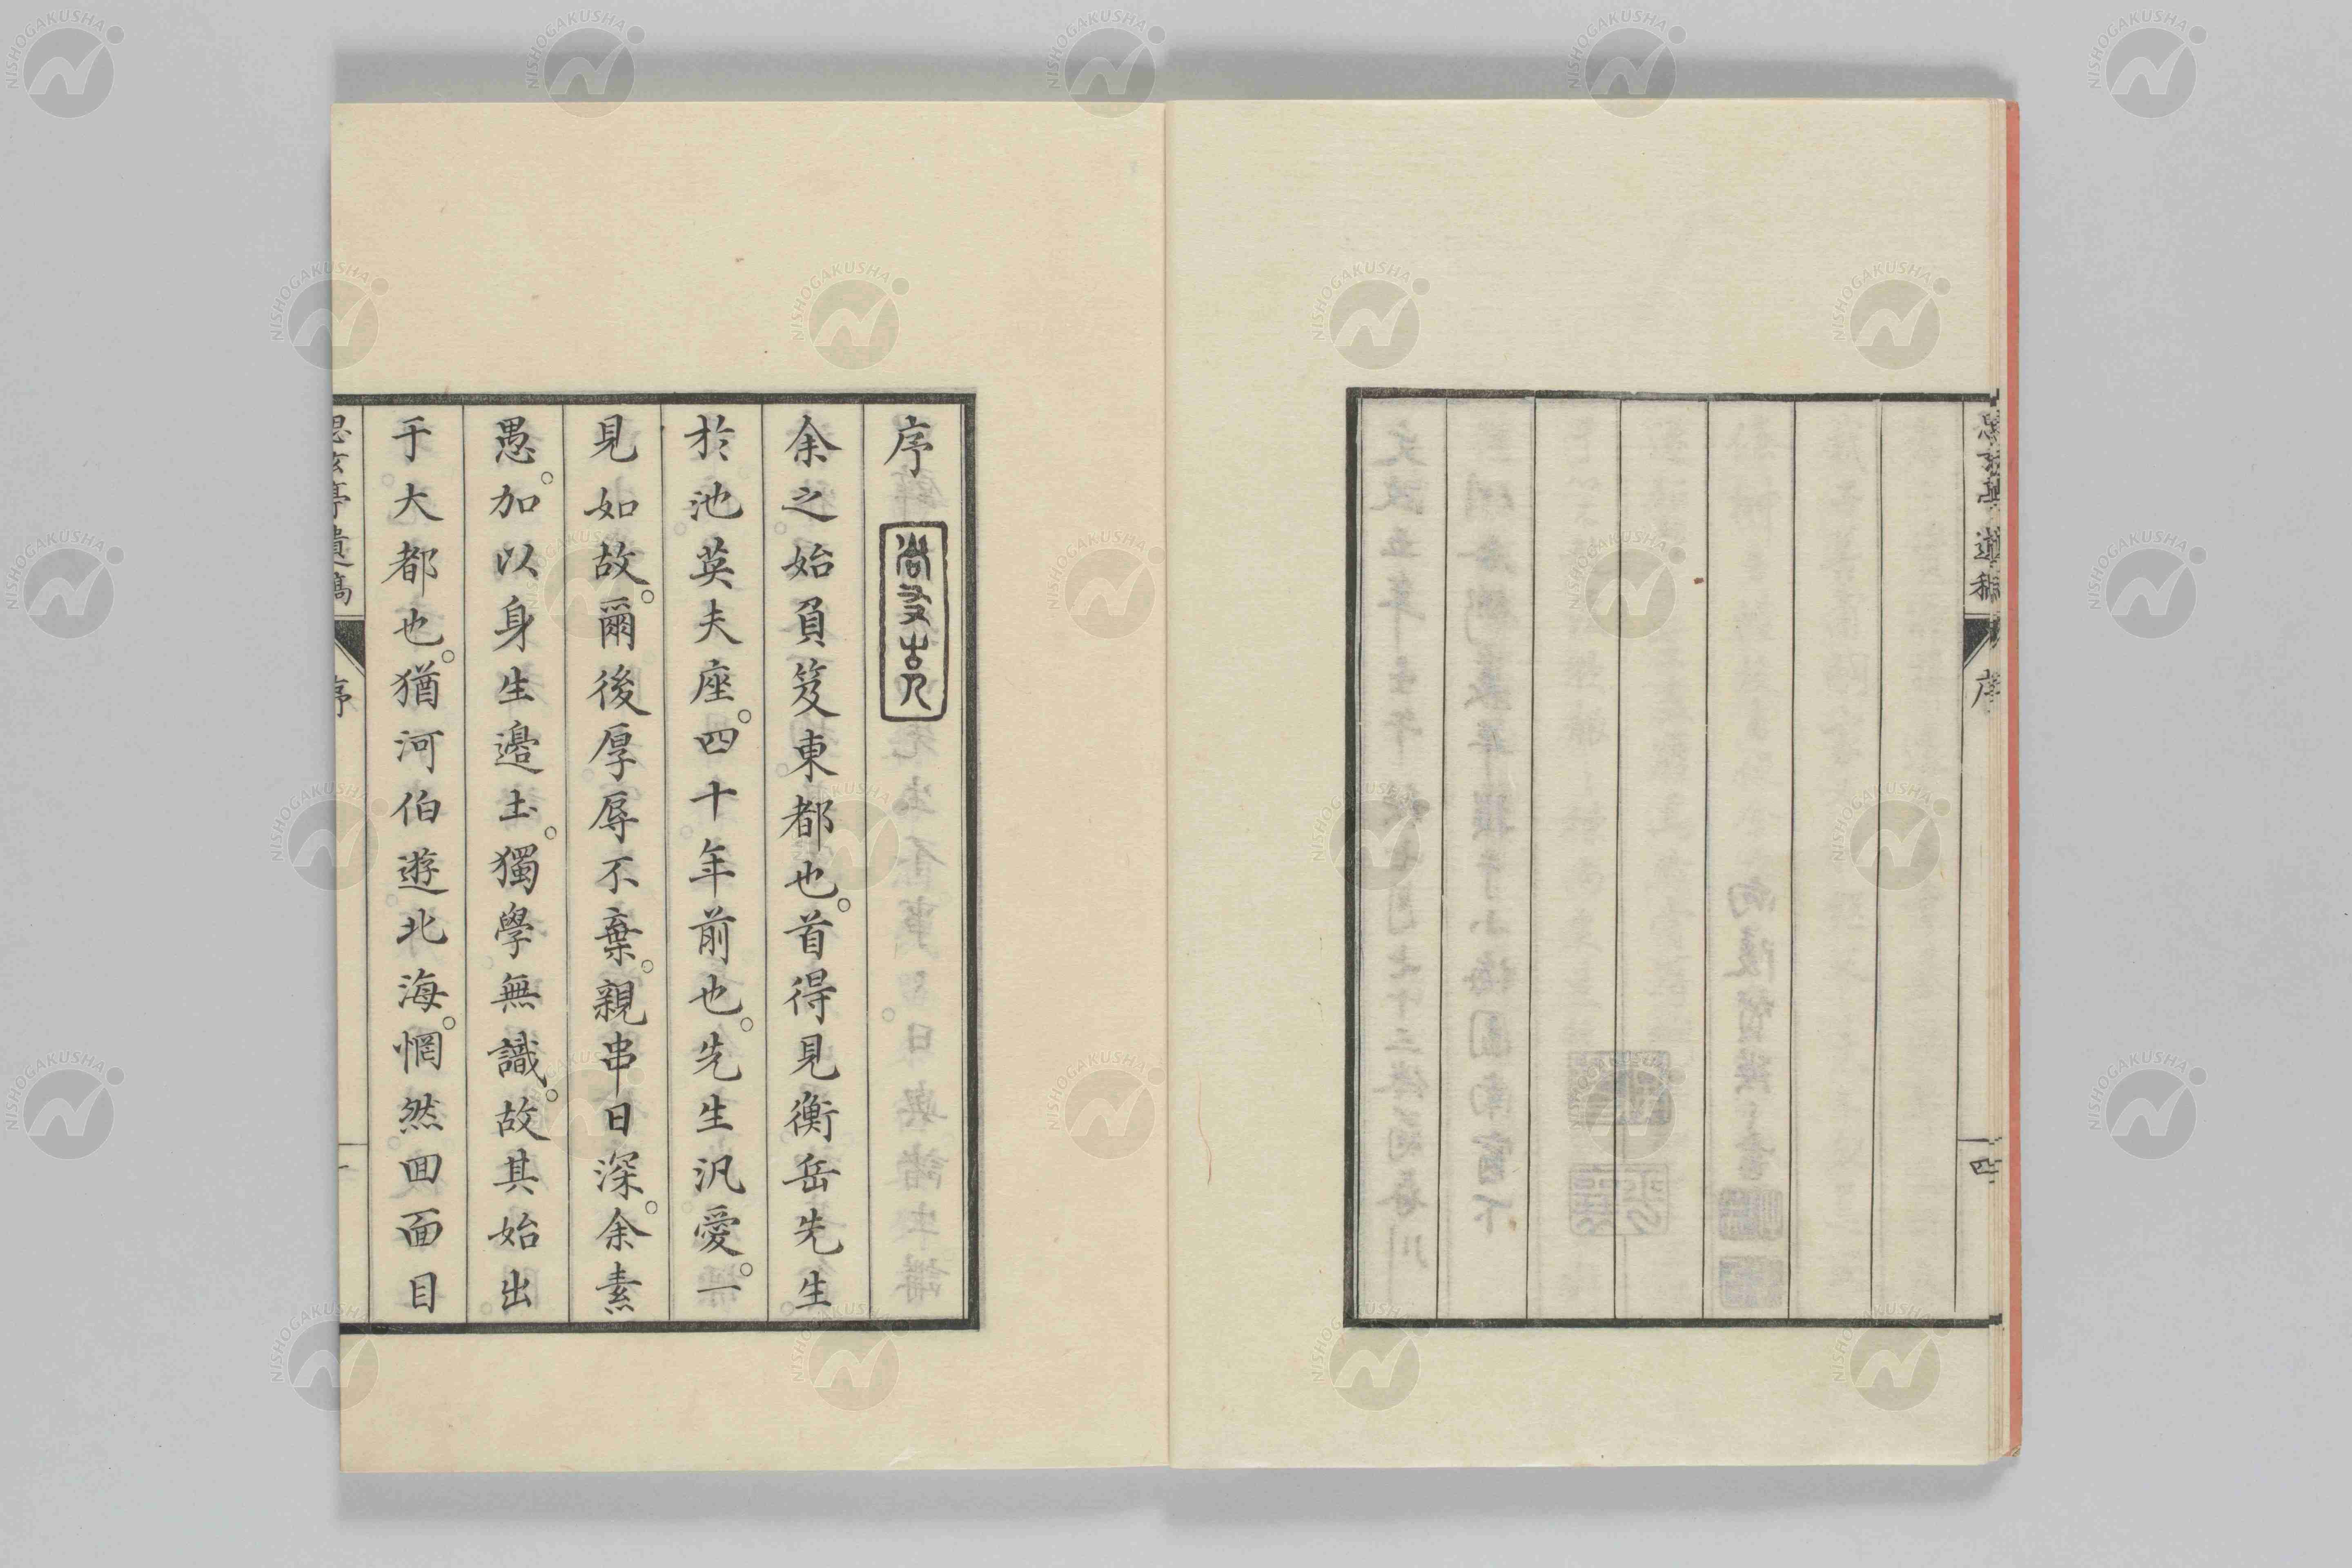 序
尚友古人
余之始負笈東都也。首得見衡岳先生
於池英夫座。四十年前也。先生汎愛。一
見如故。爾後厚辱不棄。親串日深。余素
愚。加以身生邊土。獨學無識。故其始出
于大都也。猶河伯遊北海。惘然回面目
思玄亭遺稿
序
一
思玄亭遺稿
序
四
NISHOGAKUSHA